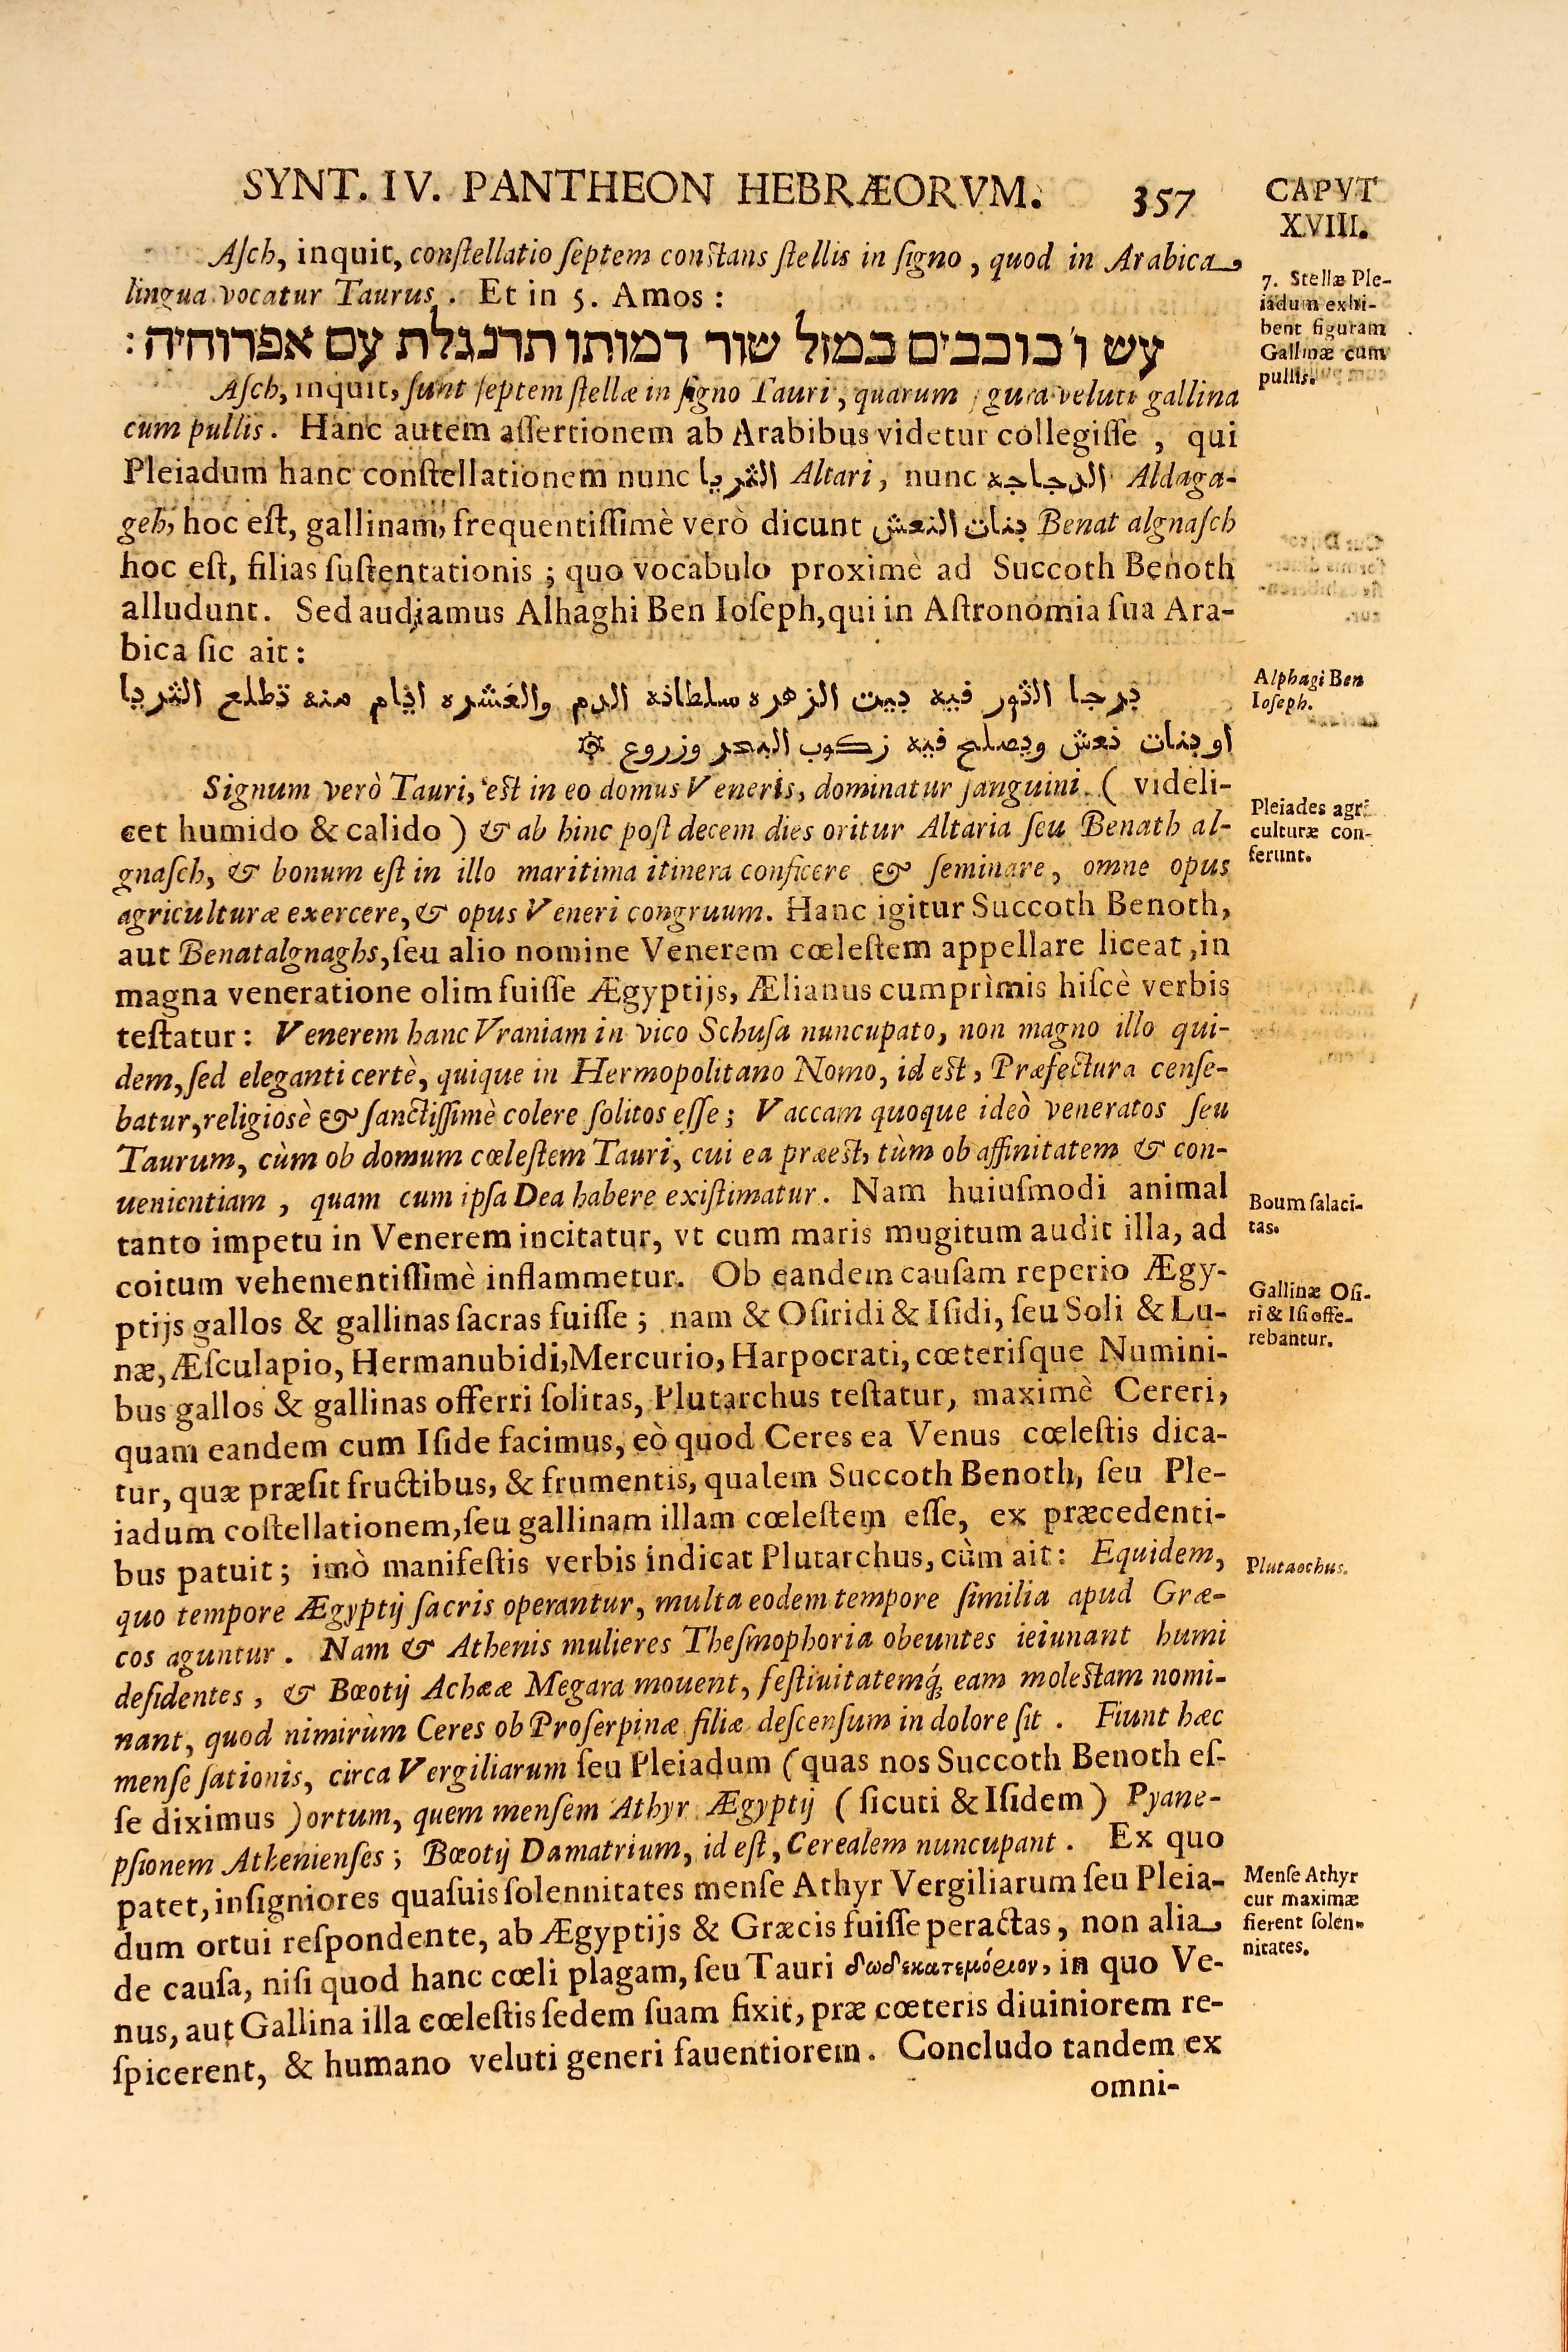 SYNT. IV. PANTHEON HEBRÆORVM. 357
CAPVT
XVIII.
Aſch, inquit, conſtellatio ſeptem conſtans ſtellis in ſigno, quod in Arabica
lingua vocatur Taurus. Et in 5. Amos:
עש ו׳ כוכבים במזל שור דמותו תרנגלת עם אפרוחיה:
Aſch, inquit, ſunt ſeptem ſtellæ in ſigno Tauri, quarum gura veluti gallina
cum pullis. Hanc autem aſſertionem ab Arabibus videtur collegiſſe, qui
Pleiadum hanc conſtellationem nunc الثريا Altari, nunc الدجاجه Aldaga-
geh, hoc eſt, gallinam, frequentiſſimè verò dicunt بنات النعش Benat algnaſch
hoc eſt, filias ſuſtentationis; quo vocabulo proximè ad Succoth Benoth
alludunt. Sed audiamus Alhaghi Ben Ioſeph, qui in Aſtronomia ſua Ara-
bica ſic ait:
برجا الثور فيه بيت الزهره سلطانه الدم والعشره ايام منه تطلع الثريا
او بنات نعش ويصلح فيه زكوب البحر وزروع ۞
Signum verò Tauri, eſt in eo domus Veneris, dominatur ſanguini. (videli-
cet humido & calido) & ab hinc poſt decem dies oritur Altaria ſeu Benath al-
gnaſch, & bonum eſt in illo maritima itinera conficere & ſeminare, omne opus
agriculturæ exercere, & opus Veneri congruum. Hanc igitur Succoth Benoth,
aut Benatalgnaghs, ſeu alio nomine Venerem cœleſtem appellare liceat, in
magna veneratione olim fuiſſe Ægyptijs, Ælianus cumprìmis hiſcè verbis
teſtatur: Venerem hanc Vraniam in vico Schuſa nuncupato, non magno illo qui-
dem, ſed eleganti certè, quique in Hermopolitano Nomo, id eſt, Præfectura cenſe-
batur, religiosè & ſanctiſſimè colere ſolitos eſſe; Vaccam quoque ideò veneratos ſeu
Taurum, cùm ob domum cœleſtem Tauri, cui ea præeſt, tùm ob affinitatem & con-
uenientiam, quam cum ipſa Dea habere exiſtimatur. Nam huiuſmodi animal
tanto impetu in Venerem incitatur, vt cum maris mugitum audit illa, ad
coitum vehementiſſimè inflammetur. Ob eandem cauſam reperio Ægy-
ptijs gallos & gallinas ſacras fuiſſe; nam & Oſiridi & Iſidi, ſeu Soli & Lu-
næ, Æſculapio, Hermanubidi, Mercurio, Harpocrati, cœteriſque Numini-
bus gallos & gallinas offerri ſolitas, Plutarchus teſtatur, maximè Cereri,
quam eandem cum Iſide facimus, eò quod Ceres ea Venus cœleſtis dica-
tur, quæ præſit fructibus, & frumentis, qualem Succoth Benoth, ſeu Ple-
iadum coſtellationem, ſeu gallinam illam cœleſtem eſſe, ex præcedenti-
bus patuit; imò manifeſtis verbis indicat Plutarchus, cùm ait: Equidem,
quo tempore Ægyptij ſacris operantur, multa eodem tempore ſimilia apud Græ-
cos aguntur. Nam & Athenis mulieres Theſmophoria obeuntes ieiunant humi
deſidentes, & Bœotij Achææ Megara mouent, feſtiuitatemq́; eam moleſtam nomi-
nant, quod nimirùm Ceres ob Proſerpinæ filiæ deſcenſum in dolore ſit. Fiunt hæc
menſe ſationis, circa Vergiliarum ſeu Pleiadum (quas nos Succoth Benoth eſ-
ſe diximus) ortum, quem menſem Athyr Ægyptij (ſicuti & Iſidem) Pyane-
pſionem Athenienſes; Bœotij Damatrium, id eſt, Cerealem nuncupant. Ex quo
patet, inſigniores quaſuis ſolennitates menſe Athyr Vergiliarum ſeu Pleia-
dum ortui reſpondente, ab Ægyptijs & Græcis fuiſſe peractas, non alia
de cauſa, niſi quod hanc cœli plagam, ſeu Tauri δωδεκατεμόριον, in quo Ve-
nus, aut Gallina illa cœleſtis ſedem ſuam fixit, præ cœteris diuiniorem re-
ſpicerent, & humano veluti generi fauentiorem. Concludo tandem ex
omni-
7. Stellæ Ple-
iadum exhi-
bent figuram
Gallinæ cum
pullis.
Alphagi Ben
Ioſeph.
Pleiades agri-
culturæ con-
ferunt.
Boum ſalaci-
tas.
Gallinæ Oſi-
ri & Iſi offe-
rebantur.
Plutaochus.
Menſe Athyr
cur maximæ
fierent ſolen-
nitates.